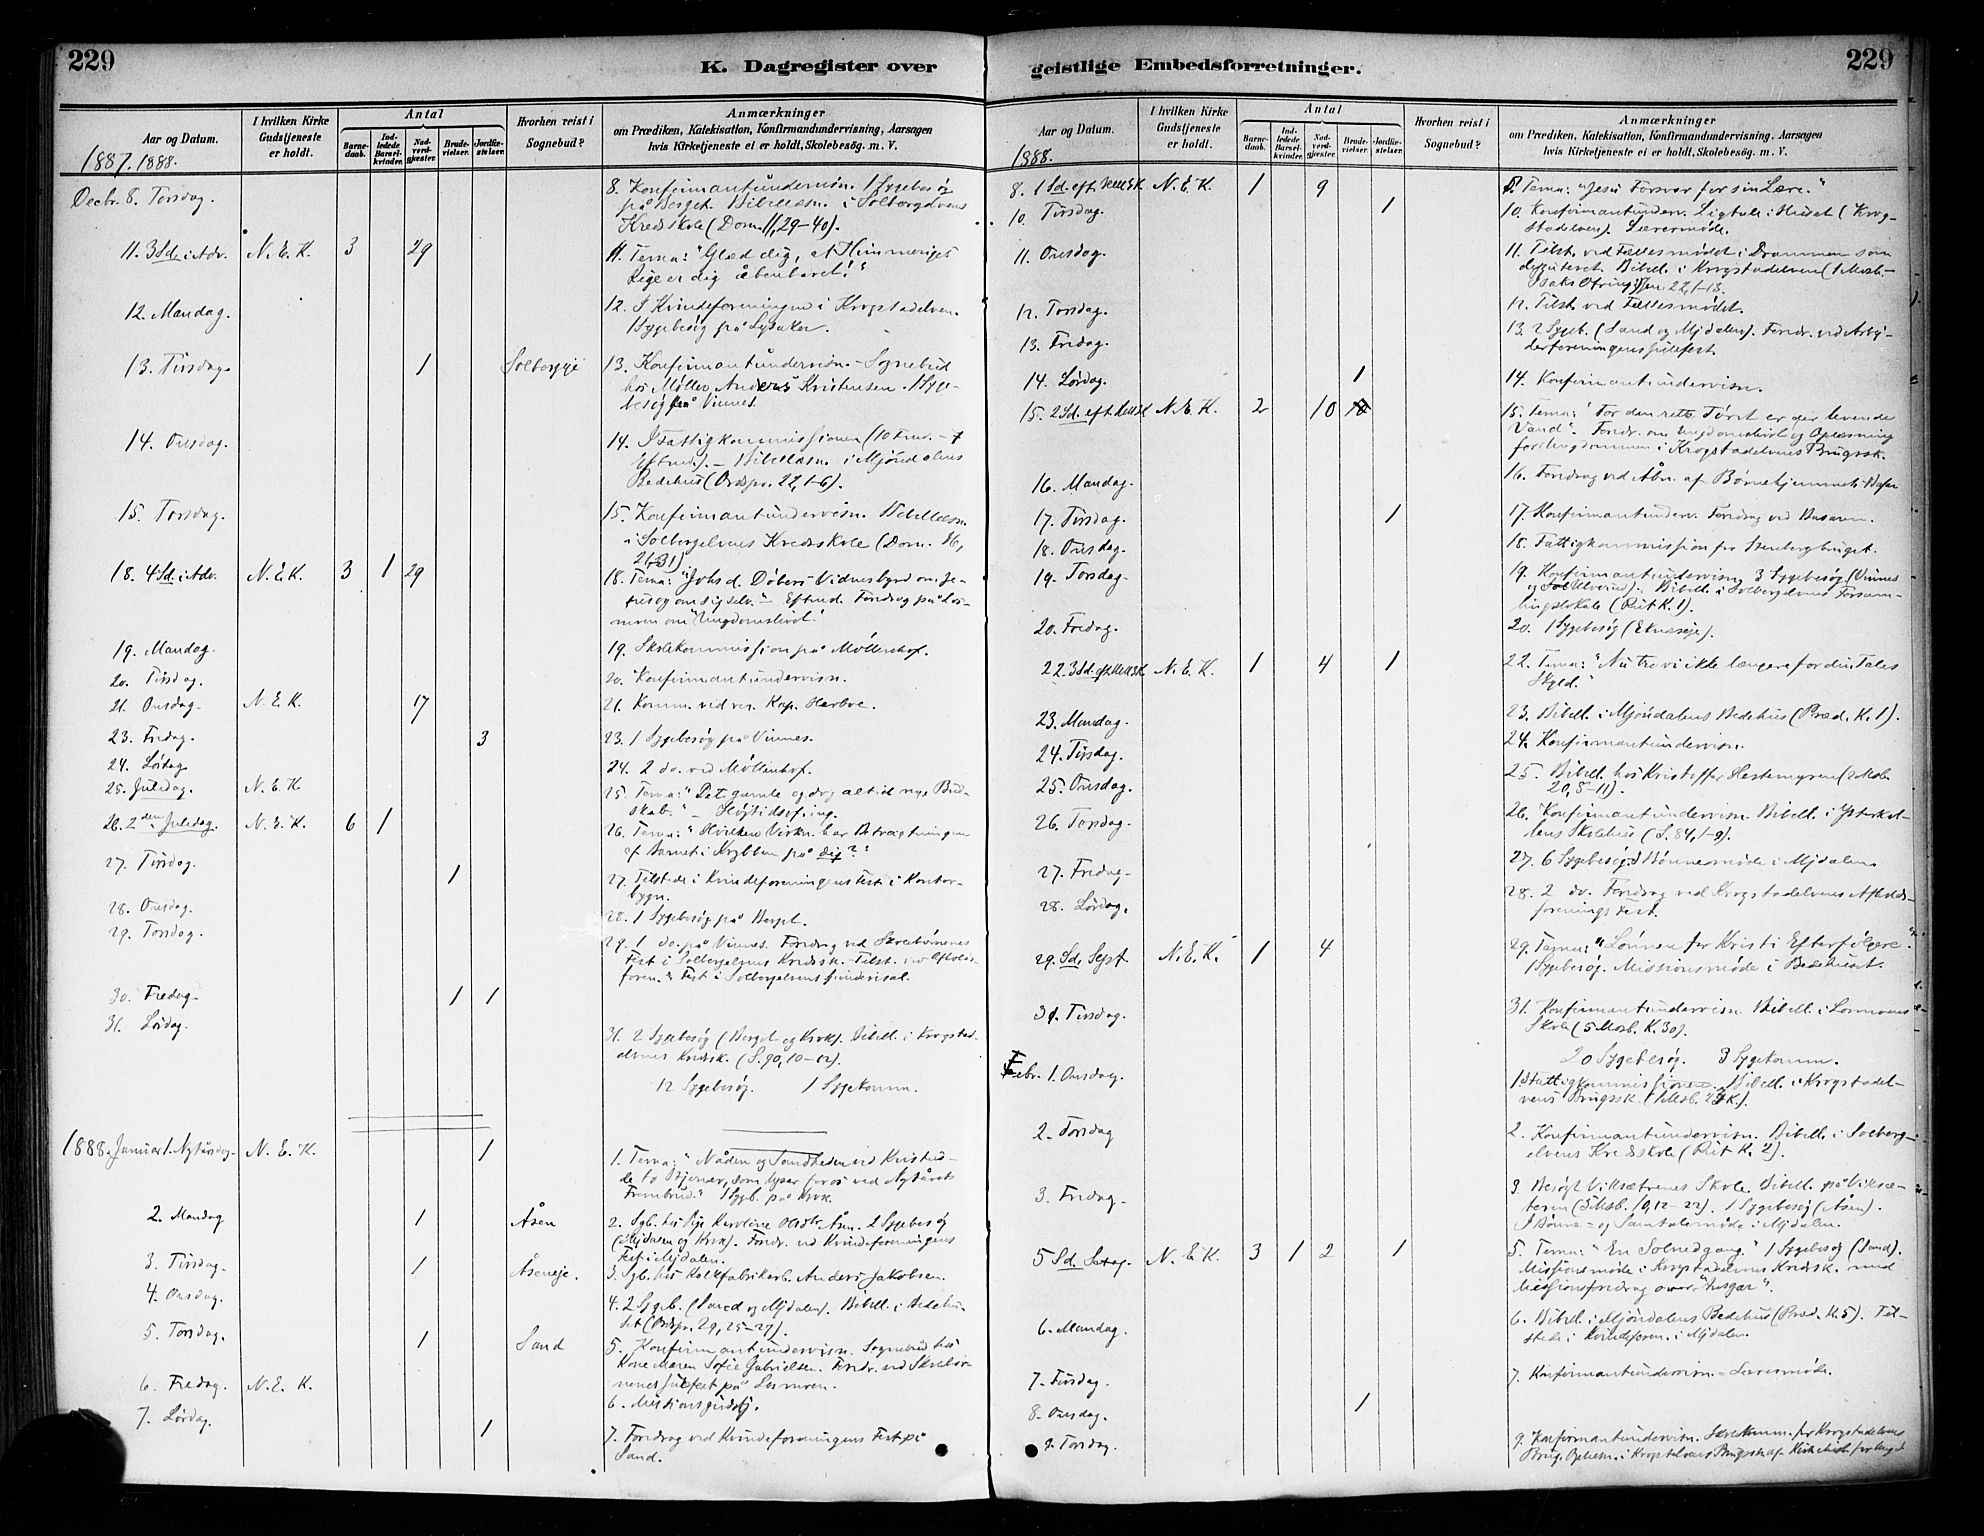 229
K. Dagregister over
Aar og Datum.
I hvilken Kirke Gudstjeneste er holdt.
Antal
Barnedaab.
Indledede Barselkvinder.
Nadverdgjester.
Brudevielser.
Jordfæstelser.
Hvorhen reist i Sognebud?
Anmærkninger
om Prædiken, Katekisation, Konfirmandundervisning, Aarsagen
hvis Kirketjeneste ei er holdt, Skolebesøg. m. V.
1887. 1888.
Decbr. 8. Torsdag.
8. Konfirmantundervisn. 1 Sygebesög
på Berget. Bibellæsn. i Solbergelvens
Kredsskole (Dom. 11, 29-40).
11. 3 Sd. i Adv. N. E. K. 3 29
11. Tema: "Glæd dig, at Himmeriges
Rige er dig åbenbaret!"
12. Mandag.
12. I Kvindeforeningen i Krogstadelven.
1 Sygebesög på Lysaker.
13. Tirsdag. 1 Solbergeje
13. Konfirmantundervisn. - Sognebud
hos Møller Anders Kristensen. 1 Syge-
besög på Vinnes.
14. Onsdag.
14. I Fattigkommissionen (10 Frmd. - 7
Eftmd.). - Bibellæsn. i Mjöndalens
Bedehus (Ordspr. 22, 1-6).
15. Torsdag.
15. Konfirmantundervisn. Bibellæsn.
i Solbergelvens Kredsskole (Dom. 16,
21-31)
18. 4 Sd. i Adv. N. E. K. 3 1 29
18. Tema: "Johs d. Døbers Vidnesbyrd om Je-
sus og om sig selv." - Eftmd. Foredrag på Los-
moen om "Ungdomslivet."
19. Mandag.
19. Skolekommission på Möllenhof.
20. Tirsdag.
20. Konfirmantundervisn.
21. Onsdag. N. E. K. 17
21. Komm. ved res. Kap. Harboe.
23. Fredag. 3
23. 1 Sygebesög på Vinnes.
24. Lørdag
24. 2 do. ved Möllenhof.
25. Juledag. N. E. K
25. Tema: "Det gamle og dog altid nye Bud-
skab." - Höjtidsofring.
26. 2den Juledag. N. E. K. 6 1
26. Tema: "Hvilken Virkn. har Betragtningen
af Barnet i Krybben på dig?"
27. Tirsdag. 1
27. Tilstede i Kvindeforeningens Fest i Kontor-
bygn.
28. Onsdag.
28. 1 Sygebesög på Berget.
29. Torsdag.
29. 1 do. på Vinnes. Foredrag ved Skolebörnenes
Fest i Solbergelvens Kredssk. - Tilst. ved Afholds-
foren.s Fest i Solbergelvens
30. Fredag. 1 1
31. Lördag.
31. 2 Sygebesög (Berget og Krok). Bibell. i Krogstad-
elvens Kredssk. (S. 90, 10-12).
12 Sygebesög. 1 Sygekomm.
1888. Januar 1. Nytårsdag. N. E. K. 1
1. Tema: "Nåden og Sandheden ved Kristus -
de to Stjerner, som lyser for os ved Nytårets
Frembrud." 1 Sygb. på Krok.
2. Mandag 1 Åsen
2. Sgb. hos Pige Karoline Olsdtr. Åsen. 2 Sygebesög
(Mjdalen og Krok). Foredr. ved Kvindeforeningens
Fest i Mjdalen.
3. Tirsdag. 1 Åseneje.
3. Sgb. hos Kalkfabrikarb. Anders Jakobsen.
4. Onsdag.
4. 2 Sygeb. (Sand og Mjdalen). Bibell. i Bedehu-
set (Ordspr. 29, 25-27).
5. Torsdag. 1 Sand
5. Konfirmantundervisn. Sognebud hos
Kone Maren Sofie Gabrielsen. Foredr. ved Skolebör-
nenes Julefest på Losmoen.
6. Fredag. N. E. K.
6. Missionsgudstj.
7. Lördag. 1
7. Foredrag ved Kvindeforeningens Fest på
Sand.
229
geistlige Embedsforretninger.
Aar og Datum.
I hvilken Kirke Gudstjeneste er holdt.
Antal
Barnedaab.
Indledede Barselkvinder.
Nadverdgjester.
Brudevielser.
Jordfæstelser.
Hvorhen reist i Sognebud?
Anmærkninger
om Prædiken, Katekisation, Konfirmandundervisning, Aarsagen
hvis Kirketjeneste ei er holdt, Skolebesøg. m. V.
1888.
8. 1 Sd. eft. Hell3K N. E. K. 1 9
8. Tema: "Jesu Forsvar for sin Lære."
10. Tirsdag. 1
10. Konfirmantunderv. Ligtale i Huset (Krog-
stadelven). Lærermöde.
11. Onsdag.
11. Tilst. ved Fællesmödet i Drammen som
Bibell. i Krogstadelven (1 Mosb.
Isaks Ofring 22, 1-13.
12. Torsdag.
12. Tilst. ved Fællesmödet.
13. Fredag.
13. 2 Sygeb. (Sand og Mjdalen). Foredr. ved Arbej-
derforeningens Julefest.
14. Lördag. 1
14. Konfirmantundervisn.
15. 2 Sd. eft Hell3K N. E. K. 2 10
15. Tema: "For den rette Törst er der levende
Vand". Foredr. om Ungdomslivet og Oplæsning
for Ungdommen i Krogstadelvens Brugssk.
16. Mandag.
16. Foredrag ved Åbn. af Børnehjemmets Basar
17. Tirsdag. 1
17. Konfirmantunderv. Foredrag ved Basaren.
18. Onsdag.
18. Fattigkommission for Stenbergbruget.
19. Torsdag.
19. Konfirmantundervisn. 3 Sygebesög (Vinnes
og Solbergeje). Bibell. i Solbergelvens Forsam-
lingslokale (Rut K. 1).
20. Fredag.
20. 1 Sygebesög (Eknæseje).
22. 3 Sd. eft Hell3K N. E. K. 1 4 1
22. Tema: "Nu tro vi ikke længere for din Tales
Skyld."
23. Mandag.
23. Bibell. i Mjöndalens Bedehus (Præd. K. 1).
24. Tirsdag.
24. Konfirmantundervisn.
25. Onsdag.
25. Bibell. hos Kristoffer Hestemyren (2 Mosb.
20, 8-11).
26. Torsdag.
26. Konfirmantundervisn. Bibell. i Ysterkol-
lens Skolehus (S. 84, 1-9).
27. Fredag.
27. 6 Sygebesög. Bönnemöde i Mjdalen
28. Lördag.
28. 2 do. Foredrag ved Krogstadelvens Afholds-
forenings Fest.
29. Sd. Sept. N. E. K. 1 4
29. Tema: "Lønnen for Kristi Efterfölgere."
1 Sygebesög. Missionsmöde i Bedehuset.
31. Tirsdag.
31. Konfirmantundervisn. Bibell. i Losmoens
Skole (5 Mosb. K. 30).
20 Sygebesög. 3 Sygekomm.
Febr. 1. Onsdag.
1. Fattigkommissionen. Bibell. i Krogstadel-
vens Brugssk.
2. Torsdag
2. Konfirmantundervisn. Bibell. i Solberg-
elvens Kredsskole (Rut K. 2).
3. Fredag.
3. Besögt Viksætrenes Skole. Bibell. på Viksæ-
teren (5 Mosb. 10, 12-22). 1 Sygebesög (Åsen).
I Bönne- og Samtalemöde i Mjdalen.
5 Sd. Sexag. N. E. K. 3 1 2 1
5. Tema: "En Solnedgang." 1 Sygebesög (Sand).
Missionsmöde i Krogstadelvens Kredssk. med
Missionsforedrag over
6. Mandag.
6. Bibell. i Mjöndalens Bedehus (Præd. K. 5). Til-
stede i Kvindeforen. i Mjdalen.
7. Tirsdag.
7. Konfirmantundervisn. - Lærermöde.
8. Onsdag. 1
9. Torsdag.
9. Konfirmantundervisn. Skolekomm. for Krogstadelvens
Brug.